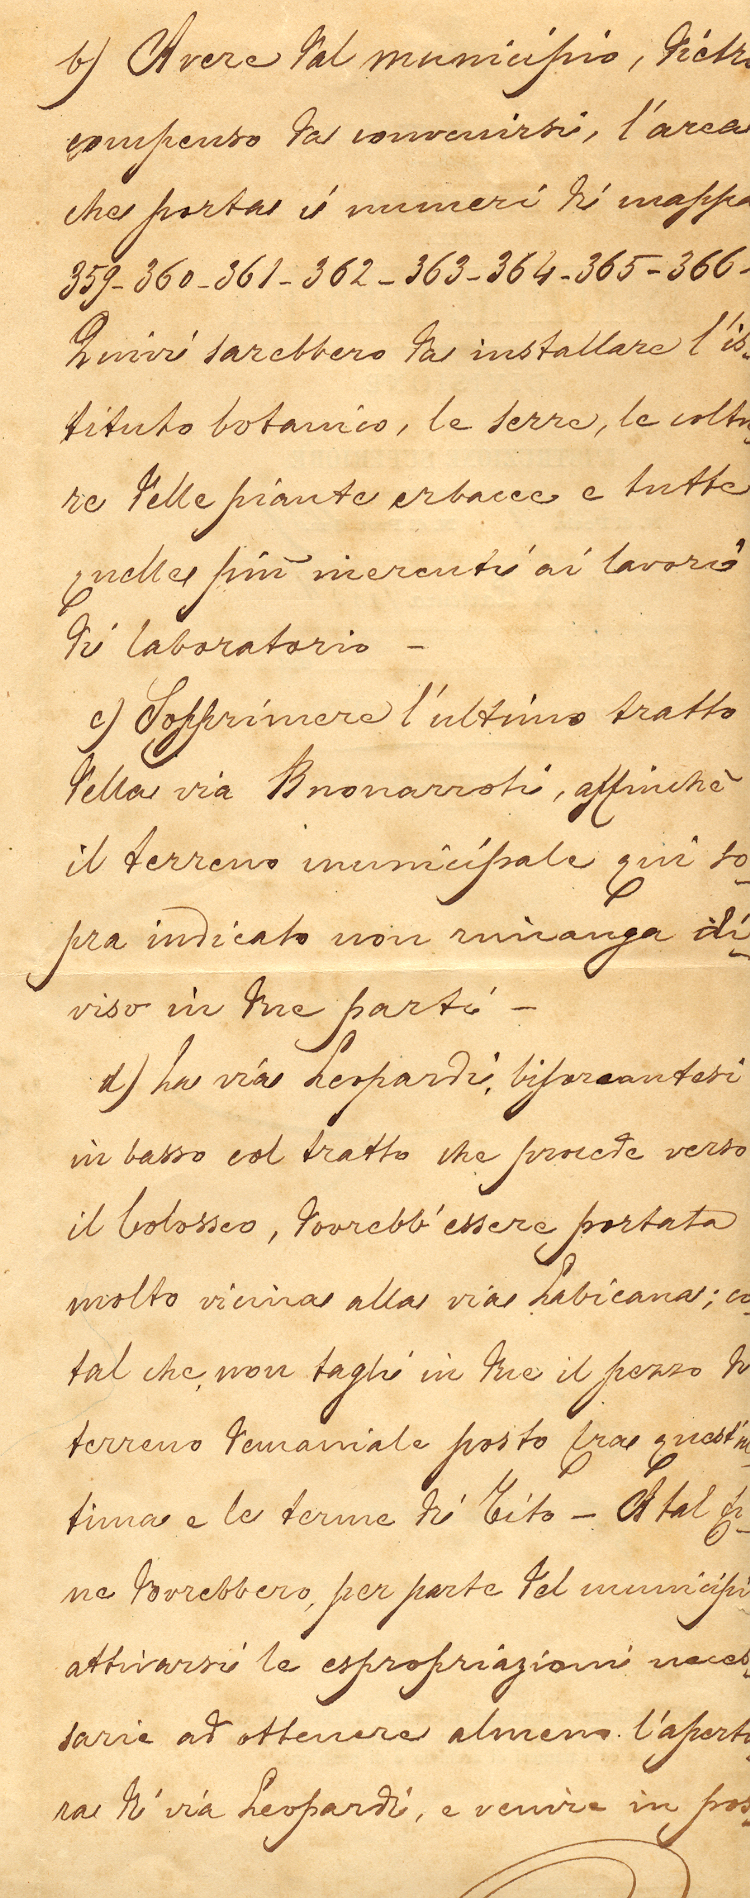 b) Avere dal municipio, dietro
compenso da convenirsi, l'area
che porta i numeri di mappa
359-360-361-362-363-364-365-366-
Quivi sarebbero da installare l'is-
tituto botanico, le serre, le coltu
re delle piante erbacee e tutte
quelle più inerenti ai lavori
di laboratorio -
c) Sopprimere l'ultimo tratto
della via Buonarroti, affinchè
il terreno municipale qui so-
pra indicato non rimanga di-
viso in due parti -
d) La via Leopardi, biforcantesi
in basso col tratto che procede verso
il Colosseo, dovrebb'essere portata
molto vicina alla via Labicana; co-
tal che, non tagli in due il pezzo di
terreno demaniale posto fra quest'ul-
tima e le terme di Tito - A tal fi-
ne dovrebbero, per parte del municipi
attivarsi le espropriazioni neces-
sarie ad ottenere almeno l'apertu
ra di via Leopardi, e venire in pos-